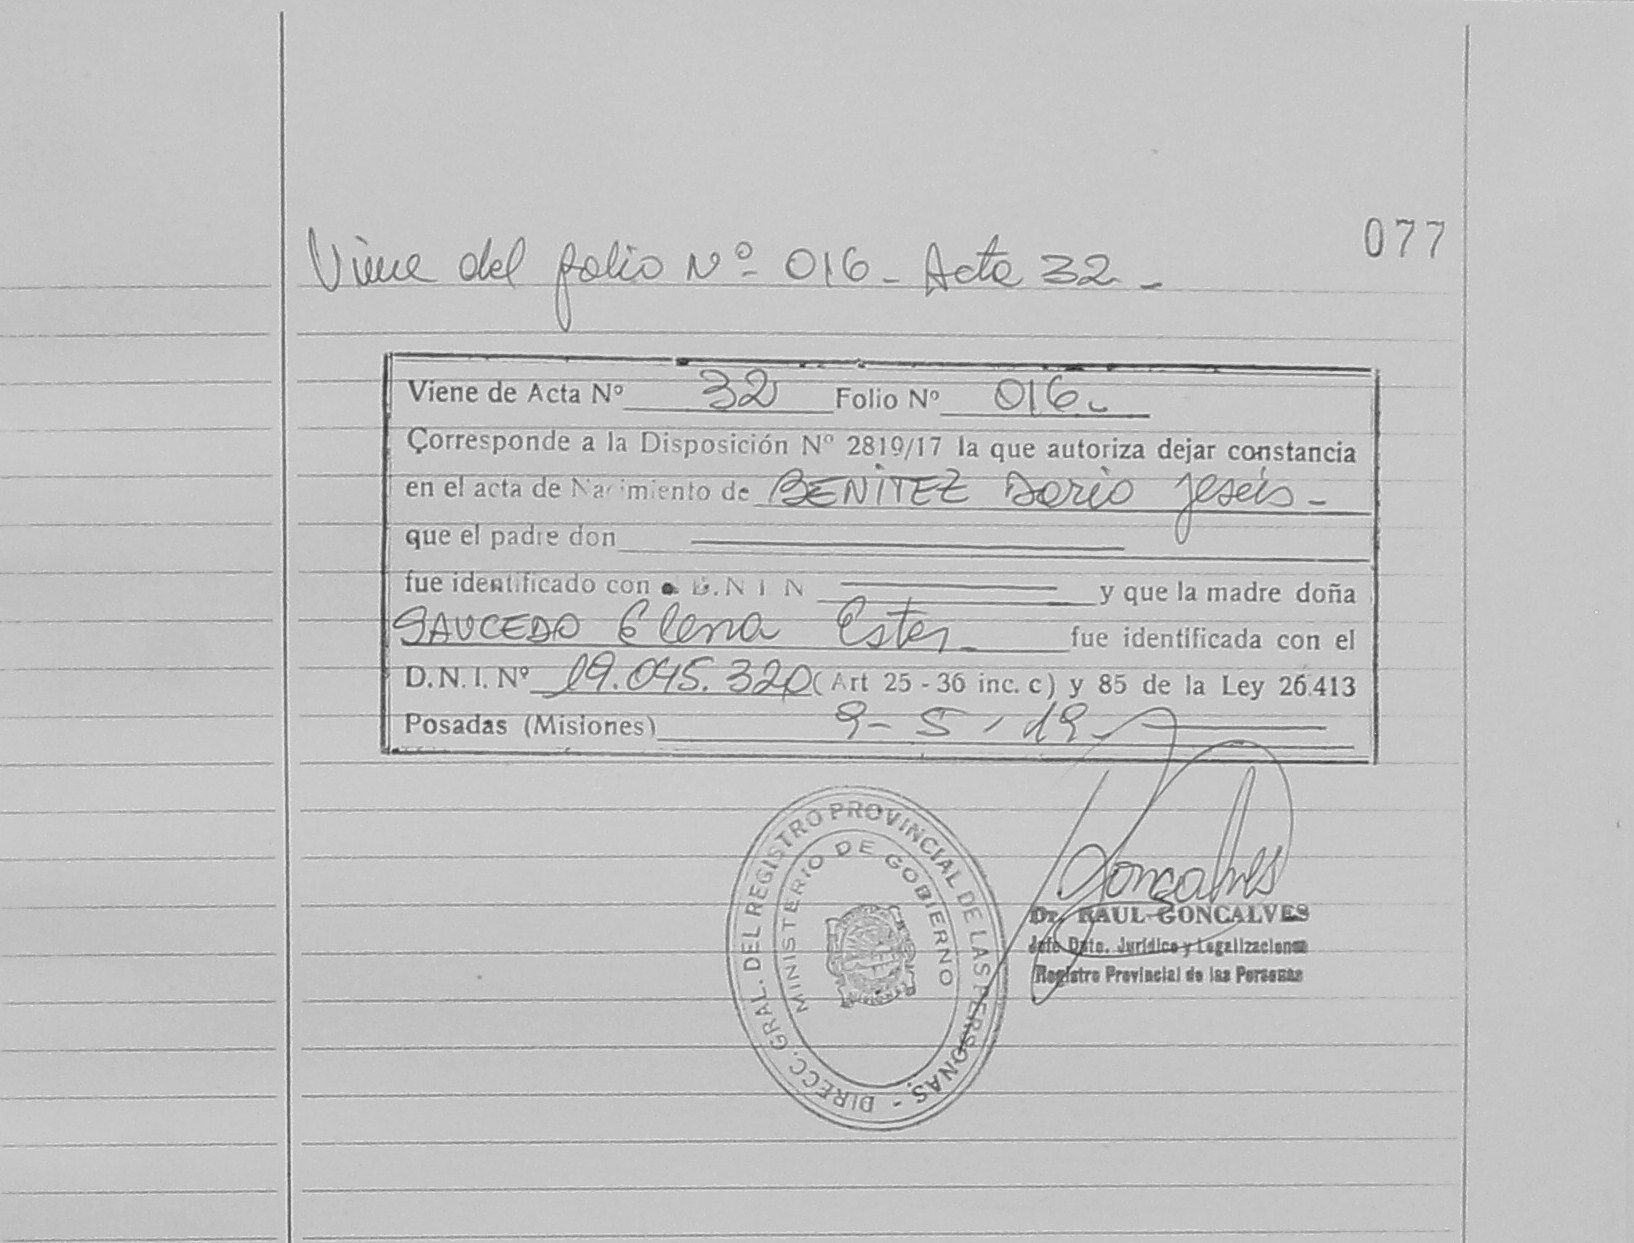 077
Viene del folio Nº 016 - Acta 32 -
Viene de Acta Nº 32 Folio Nº 016 -
Corresponde a la Disposición Nº 2819/17 la que autoriza dejar constancia
en el acta de Nacimiento de BENÍTEZ Dario Jesús -
que el padre don
fue identificado con D.N I N y que la madre doña
SAUCEDO Elena Ester - fue identificada con el
D.N.I. Nº 19.045.320 (Art 25 - 36 inc. c) y 85 de la Ley 26.413
Posadas (Misiones) 9 - 5 - 19 -
DIRECC. GRAL. DEL REGISTRO PROVINCIAL DE LAS PERSONAS. -
MINISTERIO DE GOBIERNO
Gonçalves
Dr. RAUL GONCALVES
Jefe Dpto. Jurídico y Legalizaciones
Registro Provincial de las Personas